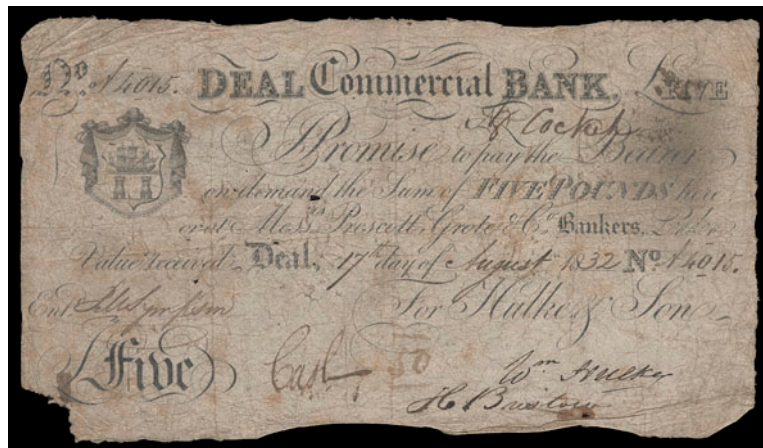 No A4015. DEAL Commercial BANK. £FIVE
I Promise to pay the Bearer
on demand the Sum of FIVE POUNDS here
or at Mess.rs Prescott, Grote & Co. Bankers,
Value received. Deal, 17th day of August 1832 No A4015.
Ent.
For Hulke & Son
£Five Cash 50
Wm Hulke
H Bristow